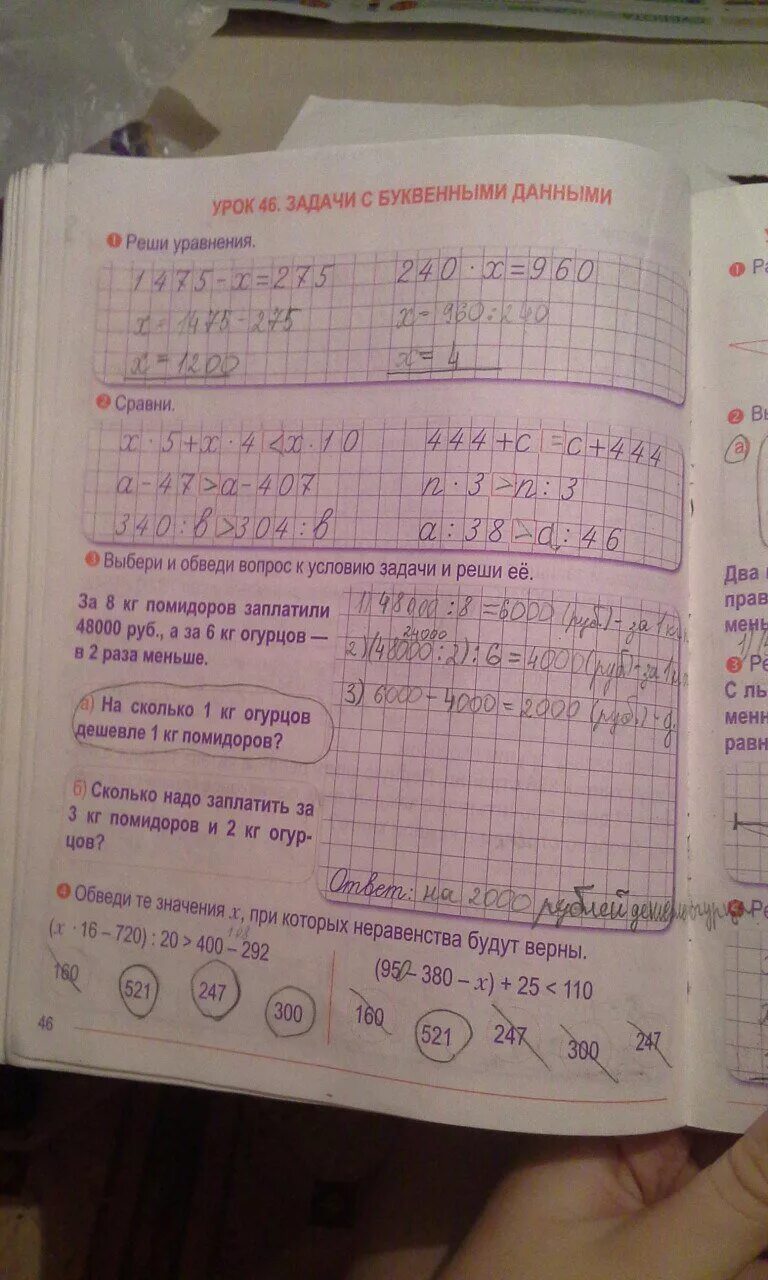 УРОК 46. ЗАДАЧИ С БУКВЕННЫМИ ДАННЫМИ
1 Реши уравнения.
1475 - x = 275
x = 1475 - 275
x = 1200
240 · x = 960
x = 960 : 240
x = 4
2 Сравни.
x · 5 + x · 4 < x · 10
a - 47 > a - 407
340 : в > 304 : в
444 + c = c + 444
n · 3 > n : 3
a : 38 > a : 46
3 Выбери и обведи вопрос к условию задачи и реши её.
За 8 кг помидоров заплатили
48000 руб., а за 6 кг огурцов —
в 2 раза меньше.
а) На сколько 1 кг огурцов
дешевле 1 кг помидоров?
б) Сколько надо заплатить за
3 кг помидоров и 2 кг огур-
цов?
1) 48000 : 8 = 6000 (руб.) - за 1
24000
2) (48000 : 2) : 6 = 4000 (руб) - за 1
3) 6000 - 4000 = 2000 (руб.) - д.
Ответ: на 2000 рублей
4 Обведи те значения x, при которых неравенства будут верны.
108
(x · 16 – 720) : 20 > 400 – 292
160 521 247 300
(950 – 380 – x) + 25 < 110
160 521 247 300 247
46
1
2 Вы
а)
Два
прав
мень
3 Ре
С ль
менн
равн
Ре